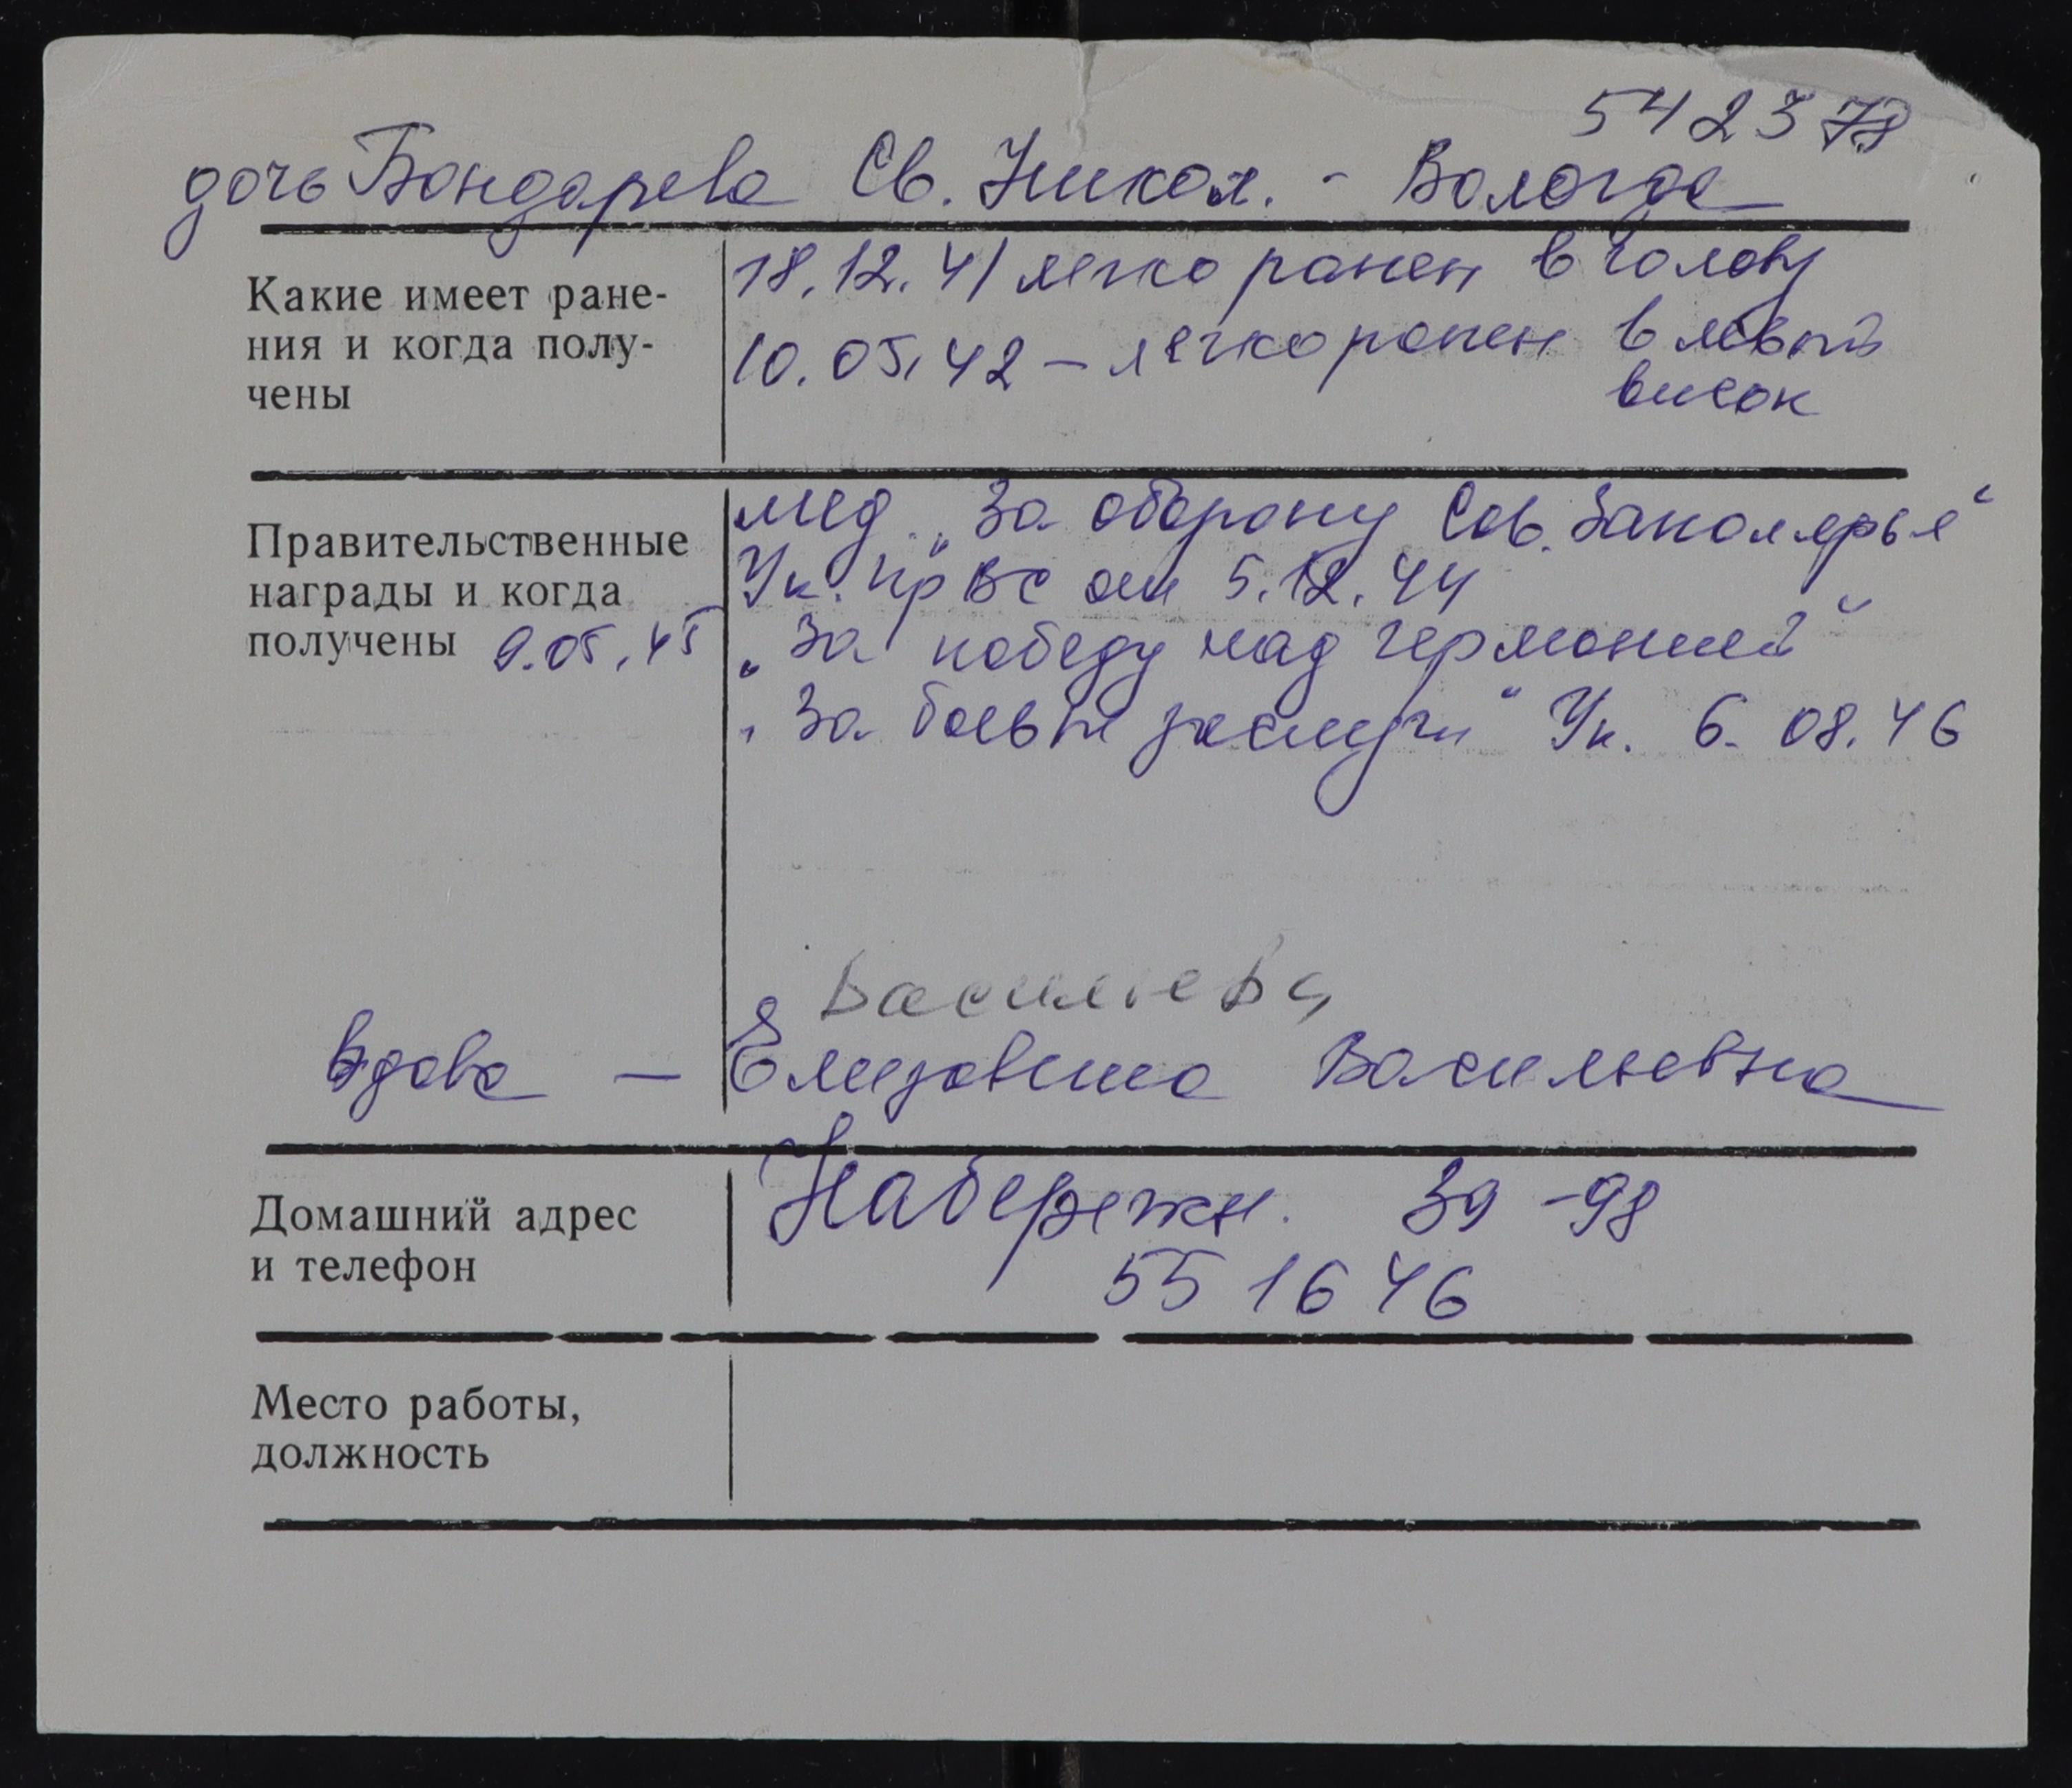 542378
дочь Бондарева Св. Никол. - Вологда
Какие имеет ране-
ния и когда полу-
чены
18.12.41 легко ранен в голову
10.05.42 – легко ранен в левый
висок
Правительственные
награды и когда
получены 9.05.45
мед. „За оборону Сов. Заполярья“
Ук. Пр ВС от 5.12.44
„За победу над Германией“
„За боевые заслуги“ Ук. 6.08.46
Васильева
Вдова — Елизавета Васильевна
Домашний адрес
и телефон
Набережн. 39 -98
55 16 46
Место работы,
должность